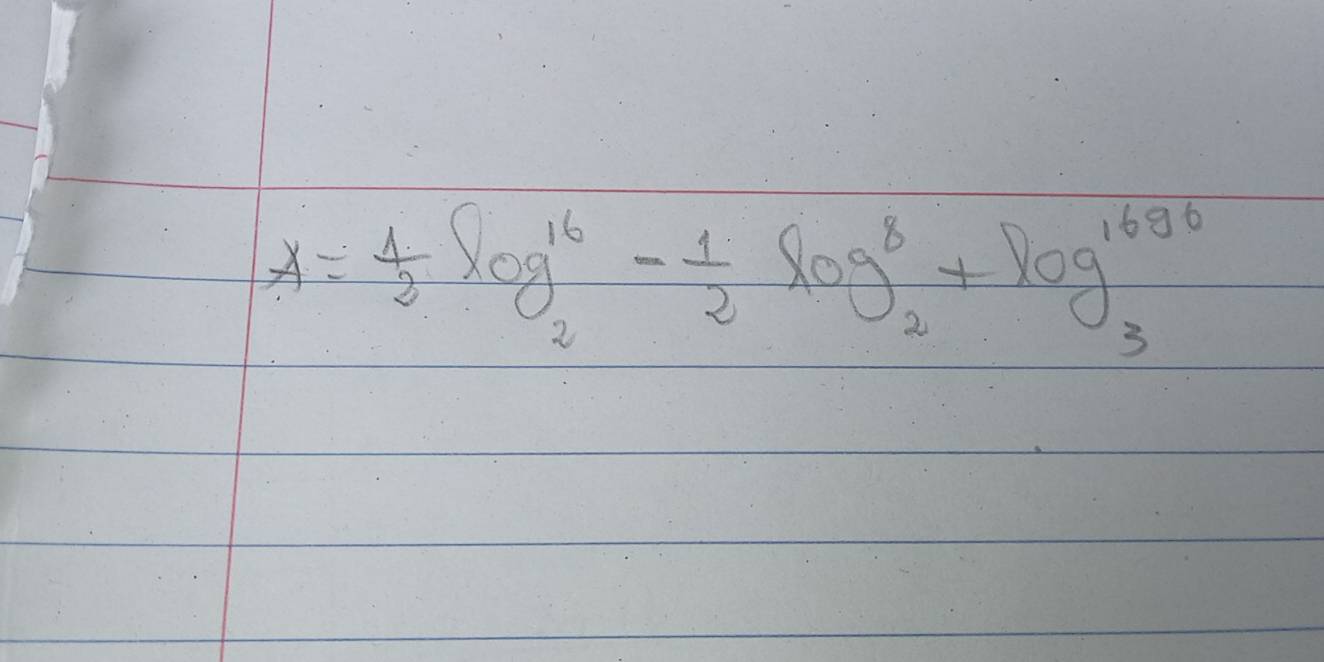 A = 1/3 log₂¹⁶ - 1/2 log₂⁸ + log₃¹⁶⁹⁶